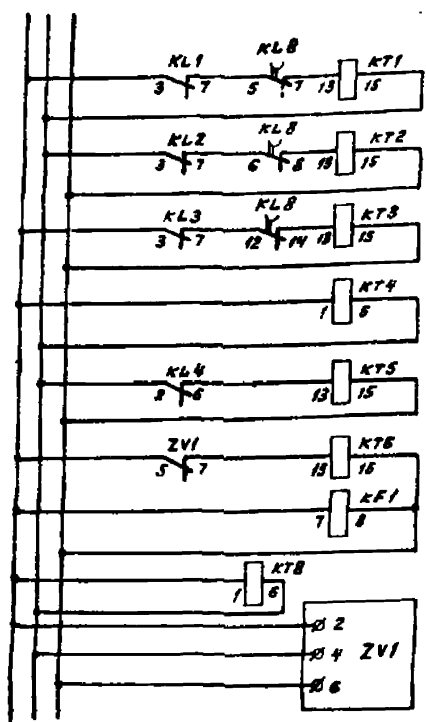 KL1 KL8 KT1
3 7 5 7 13 15
KL2 KL8 KT2
3 7 6 8 13 15
KL3 KL8 KT3
3 7 12 14 13 15
KT4
1 6
KL4 KT5
2 6 13 15
ZV1 KT6
5 7 15 16
KF1
7 8
KT8
1 6
2
4 ZV1
6